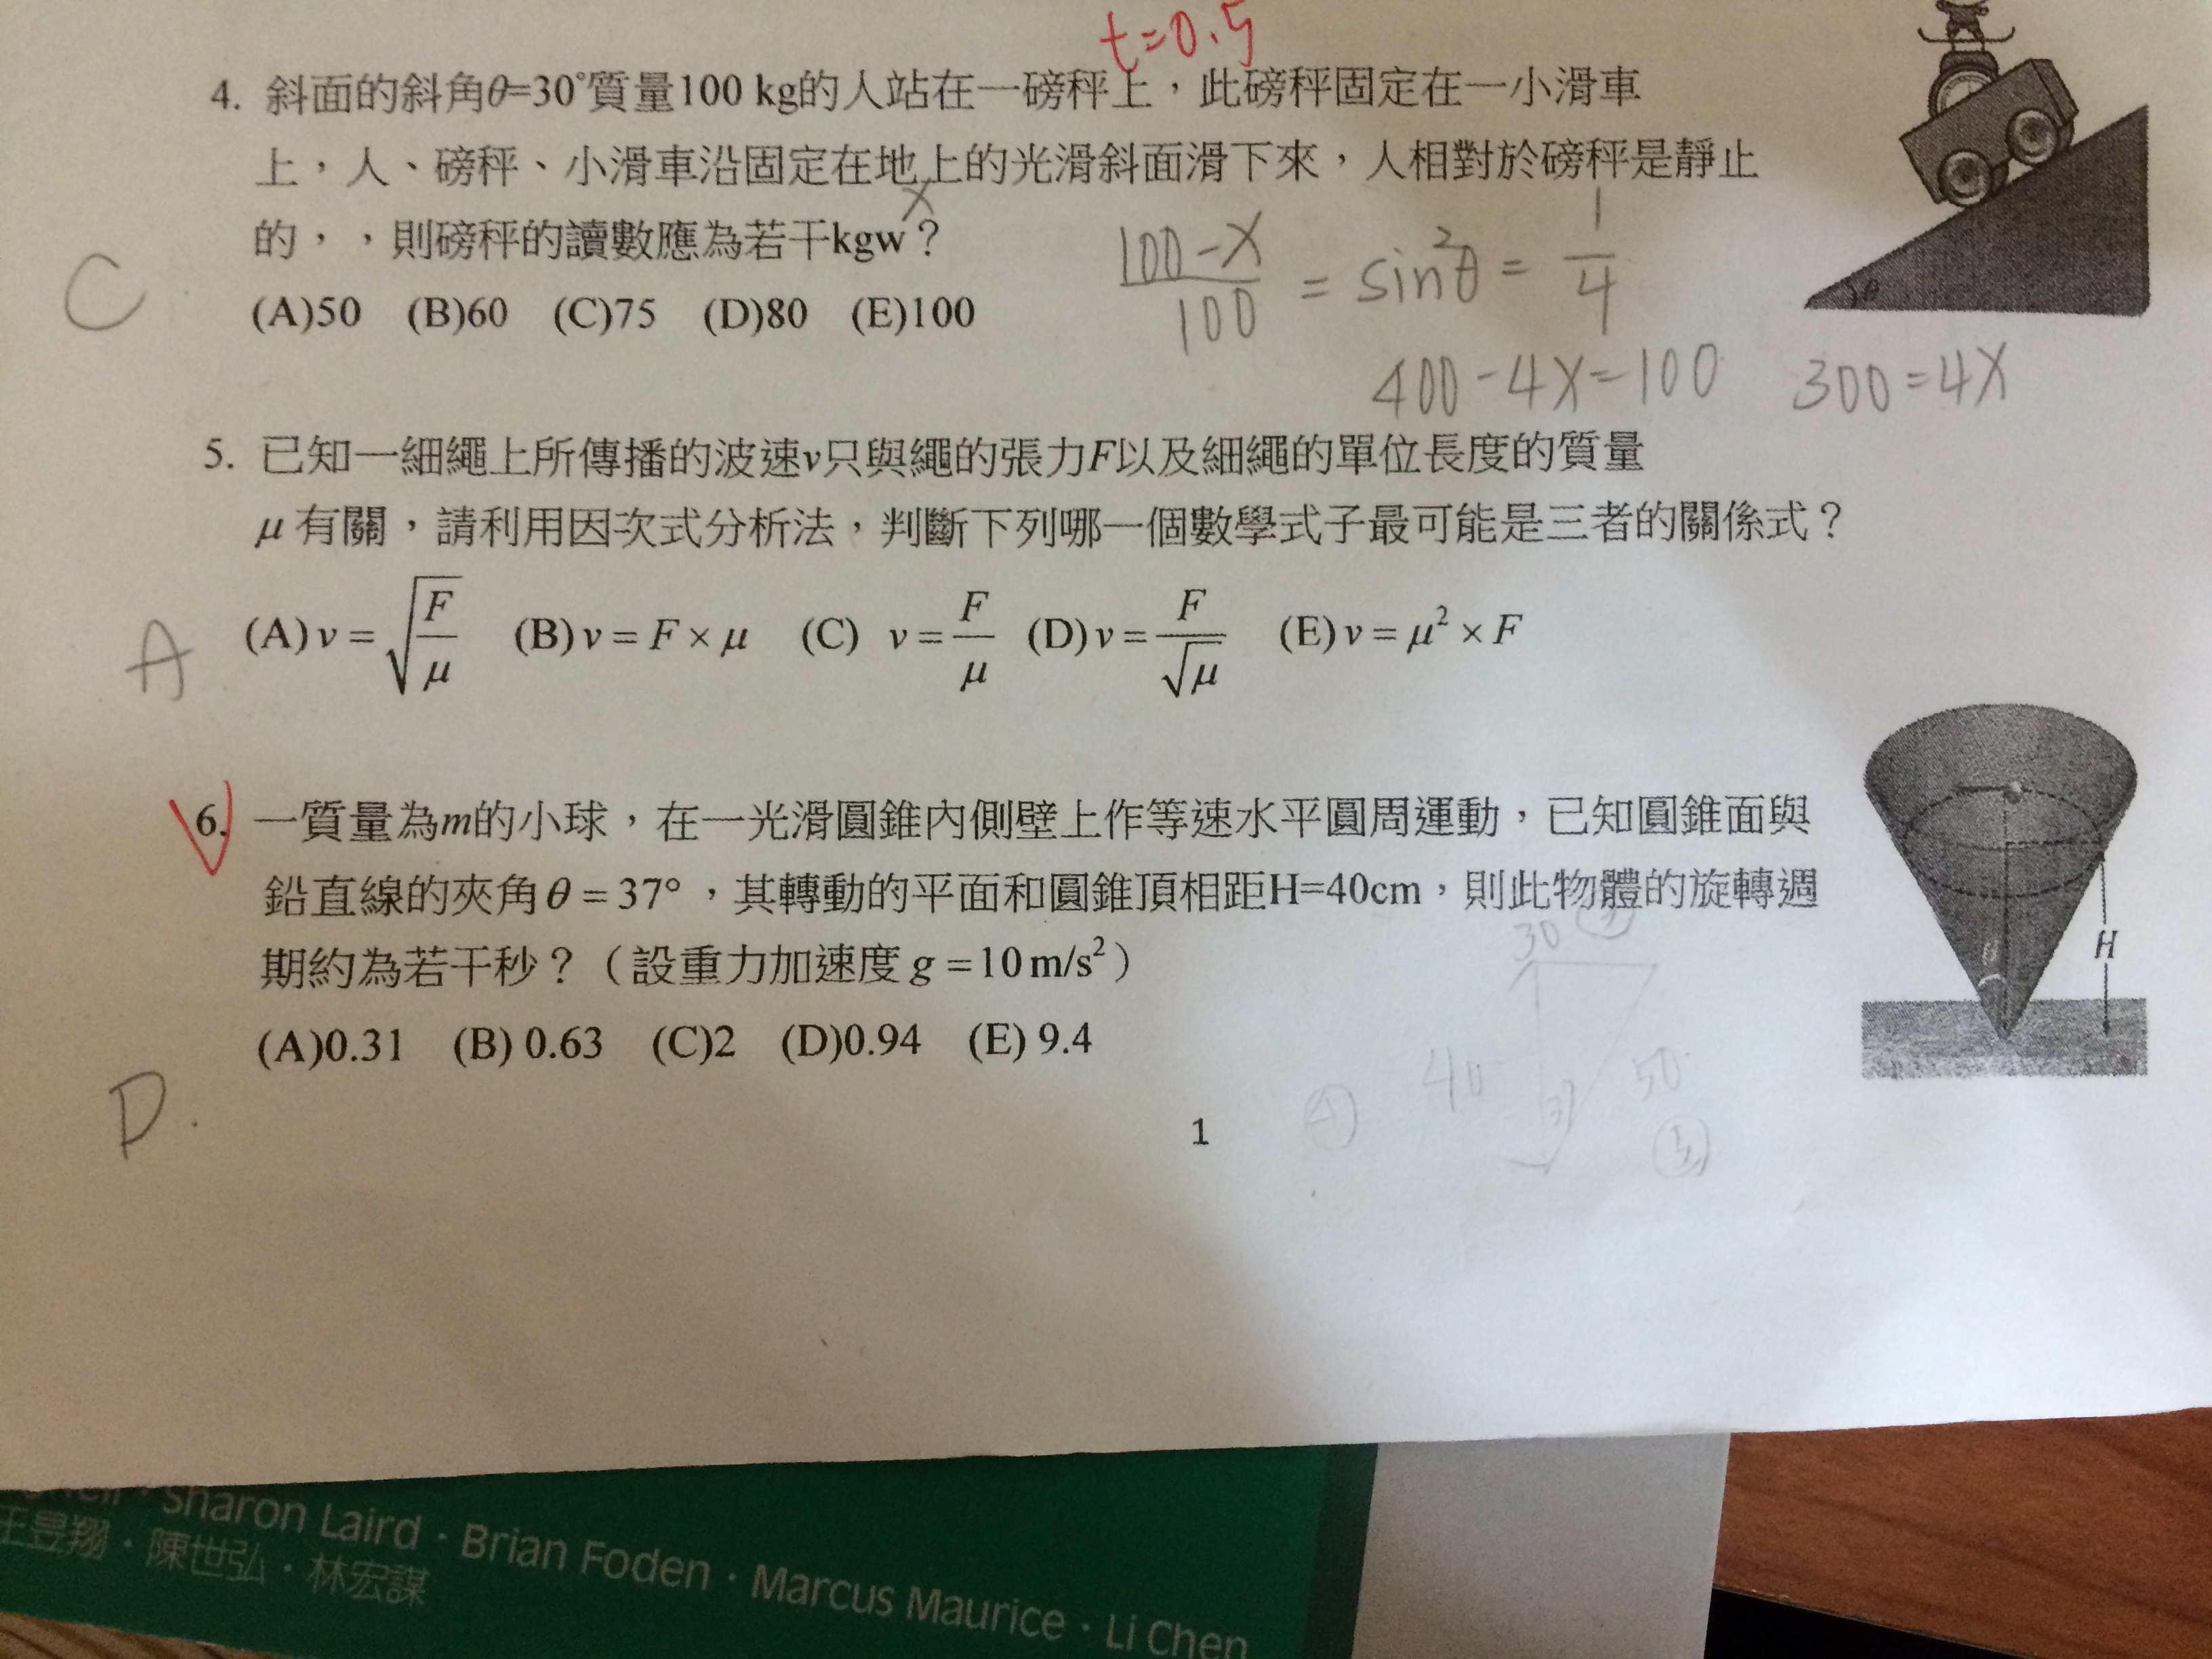 t=0.5
4. 斜面的斜角θ=30°質量100 kg的人站在一磅秤上，此磅秤固定在一小滑車
上，人、磅秤、小滑車沿固定在地上的光滑斜面滑下來，人相對於磅秤是靜止
的，，則磅秤的讀數應為若干kgw？
x
(100-x)/100 = sin²θ = 1/4
C
(A)50 (B)60 (C)75 (D)80 (E)100
θ
400-4x=100 300=4x
5. 已知一細繩上所傳播的波速v只與繩的張力F以及細繩的單位長度的質量
μ有關，請利用因次式分析法，判斷下列哪一個數學式子最可能是三者的關係式？
A
(A) v = √(F/μ) (B) v = F × μ (C) v = F/μ (D) v = F/√μ (E) v = μ² × F
6. 一質量為m的小球，在一光滑圓錐內側壁上作等速水平圓周運動，已知圓錐面與
鉛直線的夾角θ = 37°，其轉動的平面和圓錐頂相距H=40cm，則此物體的旋轉週
期約為若干秒？（設重力加速度 g = 10 m/s²）
(A)0.31 (B) 0.63 (C)2 (D)0.94 (E) 9.4
D.
H
θ
30 ③
40 ④
50 ⑤
1
Sharon Laird · Brian Foden · Marcus Maurice · Li Chen
王昱翔 · 陳世弘 · 林宏謀